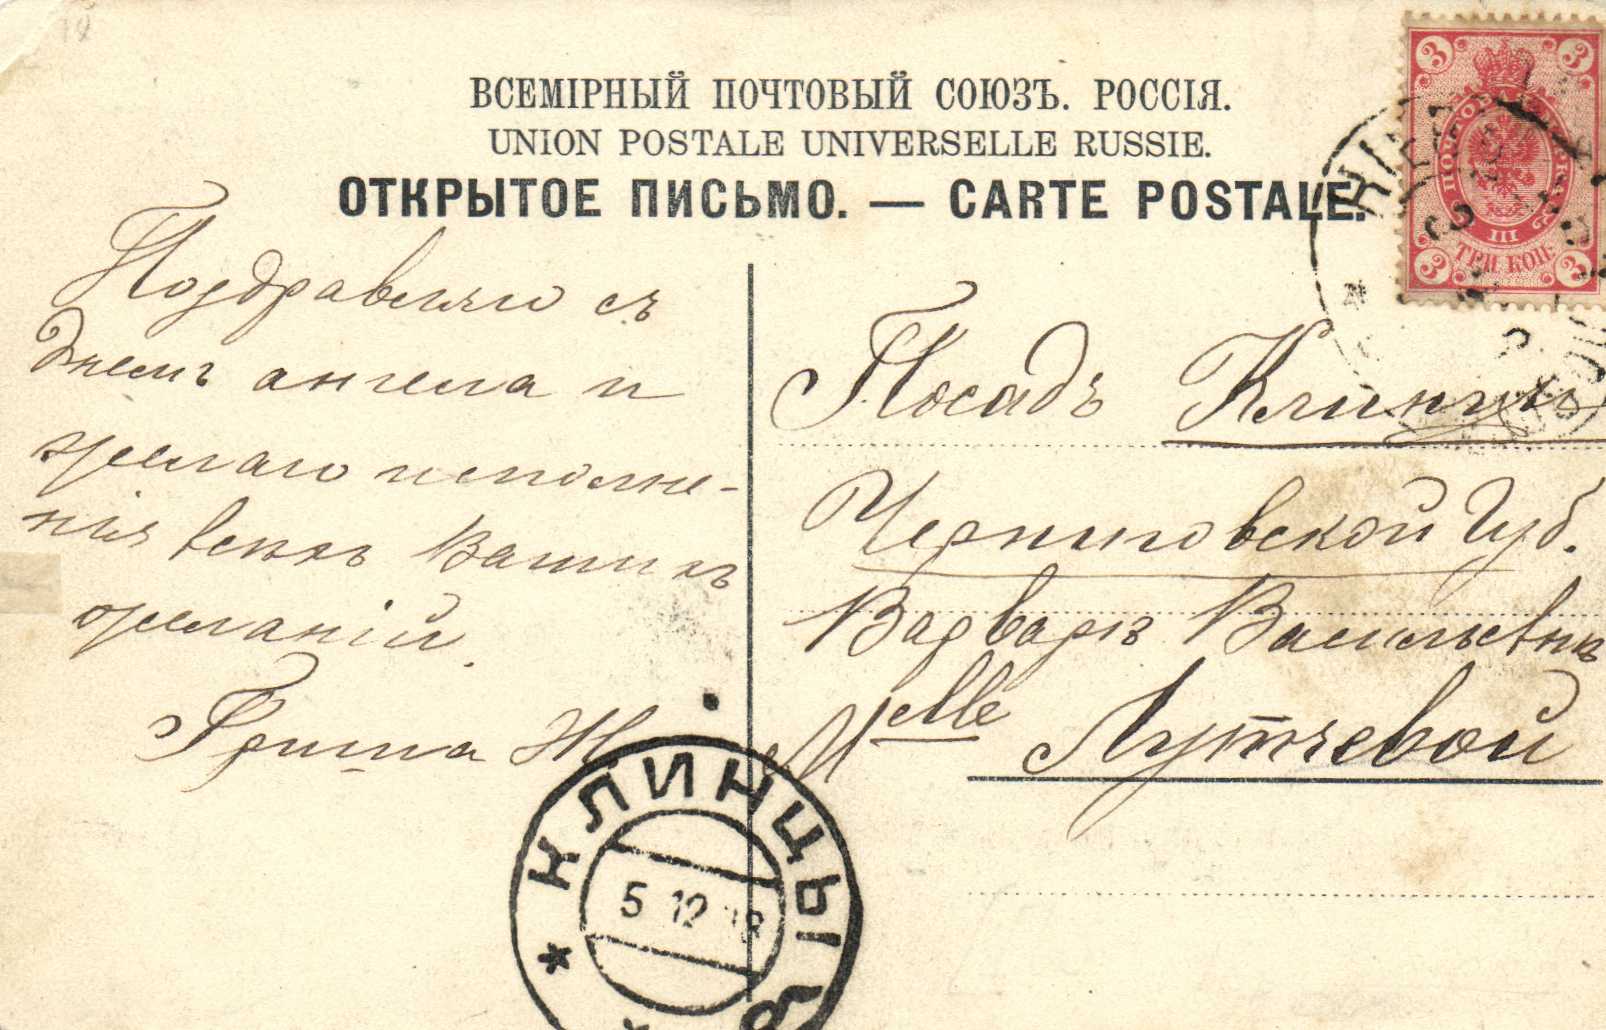 ВСЕМІРНЫЙ ПОЧТОВЫЙ СОЮЗЪ. РОССІЯ.
UNION POSTALE UNIVERSELLE RUSSIE.
ОТКРЫТОЕ ПИСЬМО. — CARTE POSTALE.
3 3
III
ТРИ КОП.
3 3
Поздравляю съ
днемъ ангела и
желаю исполне-
нія всѣхъ Вашихъ
желаній.
Гриша Ж
Посадъ Клинцы
Черниговской Губ.
Варварѣ Васильевнѣ
Melle Лутчевой
КЛИНЦЫ
5 12